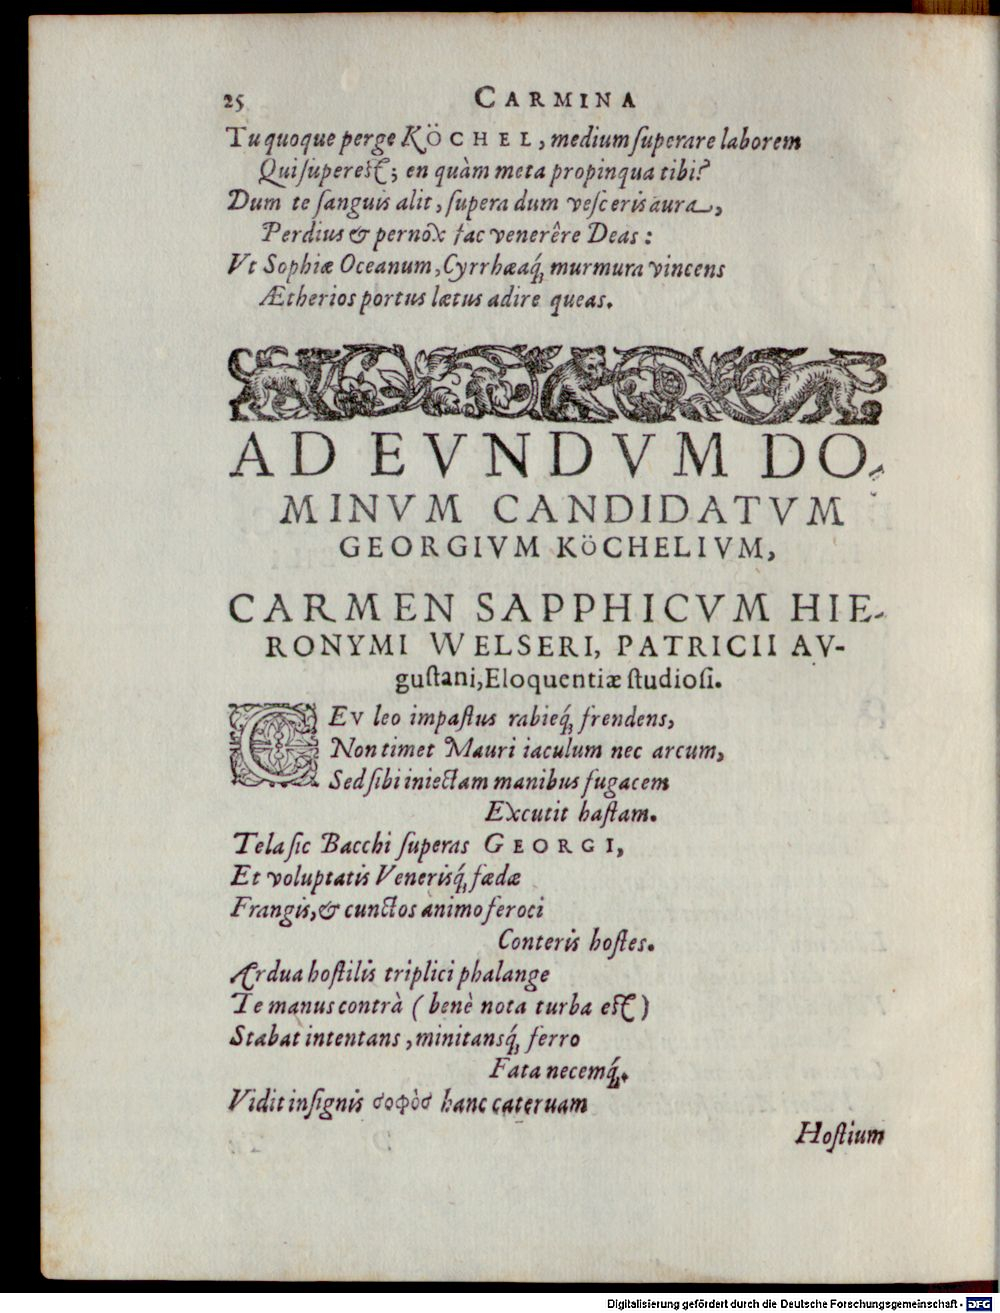 25 CARMINA
Tu quoque perge KÖCHEL, medium ſuperare laborem
Qui ſupereſt; en quàm meta propinqua tibi?
Dum te ſanguis alit, ſupera dum veſceris aura,
Perdius & pernox fac venerêre Deas:
Vt Sophiæ Oceanum, Cyrrhæaq́; murmura vincens
Ætherios portus lætus adire queas.
AD EVNDVM DO-
MINVM CANDIDATVM
GEORGIVM KÖCHELIVM,
CARMEN SAPPHICVM HIE-
RONYMI WELSERI, PATRICII AV-
guſtani, Eloquentiæ ſtudioſi.
CEV leo impaſtus rabieq́; frendens,
Non timet Mauri iaculum nec arcum,
Sed ſibi iniectam manibus fugacem
Excutit haſtam.
Tela ſic Bacchi ſuperas GEORGI,
Et voluptatis Venerisq́; fædæ
Frangis, & cunctos animo feroci
Conteris hoſtes.
Ærdua hoſtilis triplici phalange
Te manus contrà (benè nota turba eſt)
Stabat intentans, minitansq́; ferro
Fata necemq́;.
Vidit inſignis σοφὸσ hanc cateruam
Hoſtium
Digitalisierung gefördert durch die Deutsche Forschungsgemeinschaft - DFG